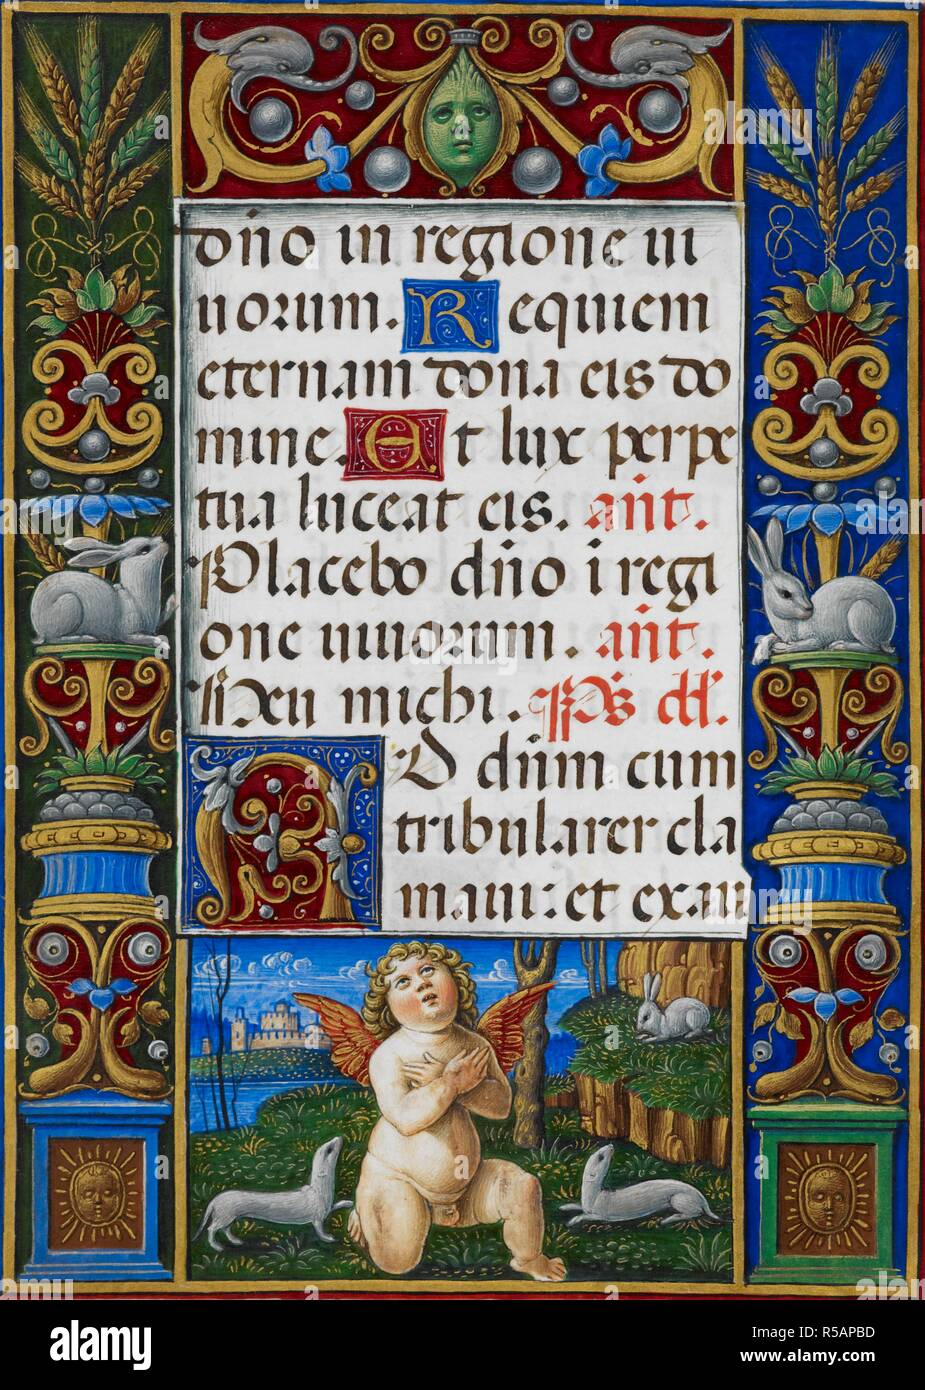 dño in regione ui
uorum. Requiem
eternam dona eis do
mine. Et lux perpe
tua luceat eis. añt.
Placebo dño i regi
one uiuorum. añt.
Heu michi. p̄s d̄d.
AD dñm cum
tribularer cla
maui: et exaui
alamy
Image ID: R5APBD
www.alamy.com